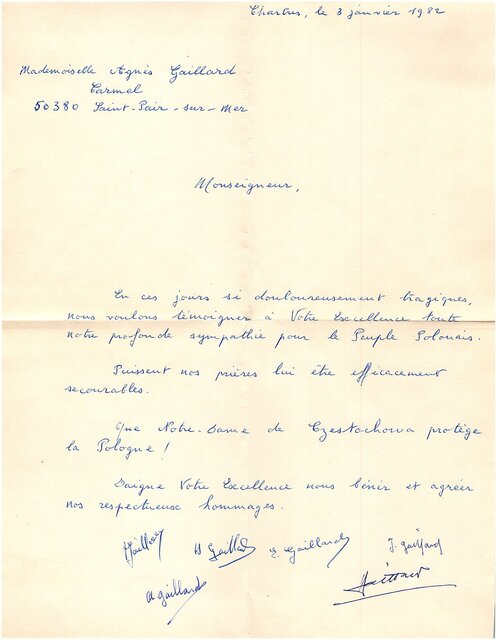 Chartres, le 3 janvier 1982
Mademoiselle Agnès Gaillard
Carmel
50380 Saint-Pair-sur-Mer
Monseigneur,
En ces jours si douloureusement tragiques,
nous voulons témoigner à Votre Excellence toute
notre profonde sympathie pour le Peuple Polonais.
Puissent nos prières lui être efficacement
secourables.
Que Notre-Dame de Czestochowa protège
la Pologne !
Daigne Votre Excellence nous bénir et agréer
nos respectueux hommages.
Gaillard Gaillard J. Gaillard
A Gaillard